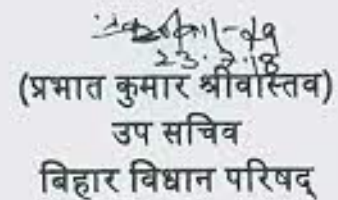 23.2.18
(प्रभात कुमार श्रीवास्तव)
उप सचिव
बिहार विधान परिषद्